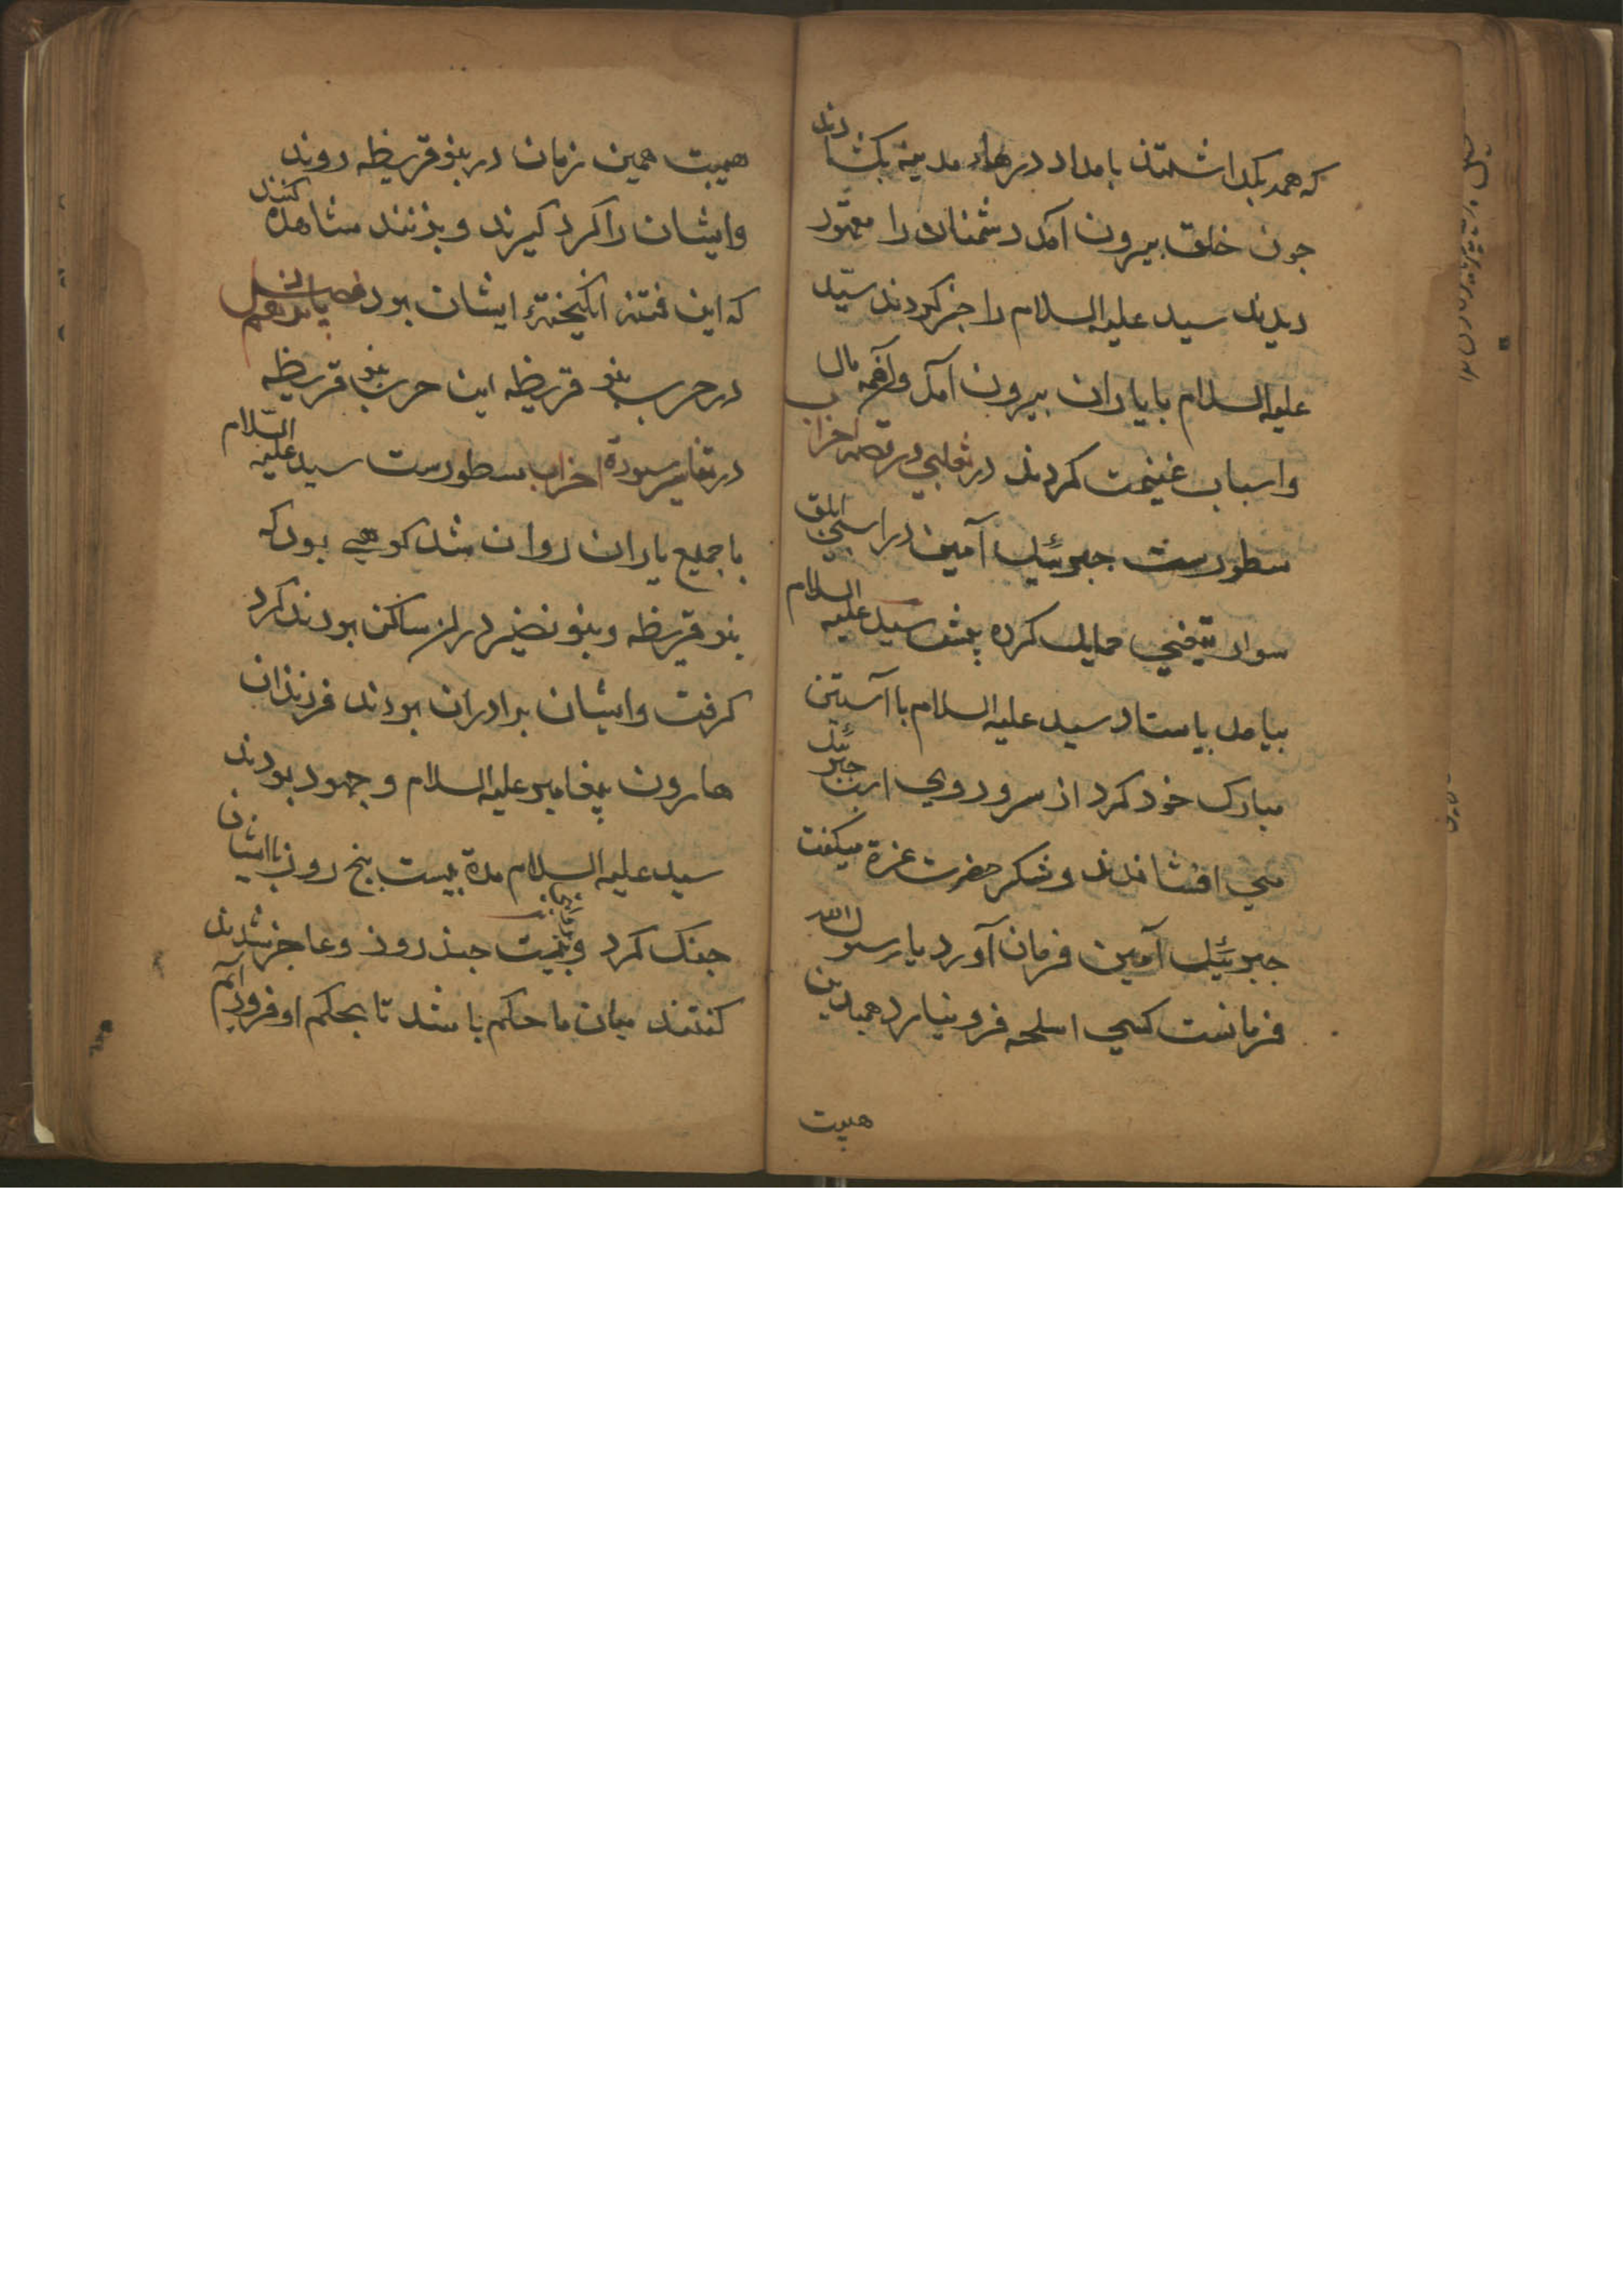 که همه بکداشتند بامداد درهاء مدینه بکشادند
جون خلق بیرون آمد دشمنان را مقهور
دیدند سید علیه السلام را خبر کردند سیّد
علیه السلام با یاران بیرون آمد وآنهمه مال
واسباب غنیمت کردند در ثعلبی در قصه احزاب
مسطورست جبرئیل آمین در اسپی ابلق
سوار تیغی حمایل کرده پیش سید علیه السلام
بیامد بایستاد سید علیه السلام با آستین
مبارک خود کرد از سر و روی اسب جبرئیل
می افشاندند و شکر حضرت عزة میکفت
جبرئیل آمین فرمان آورد یا رسول الله
فرمانست کسی اسلحه فرو نیارد همبدین
هیبت
هیبت همین زمان در بنو قریظه روند
وایشان را کرد کیرند و بزنند مشاهده کنند
که این فتنه انکیخته ایشان بود فصل یازدهم
در حرب بنو قریظه این حرب بنو قریظه
در تفاسیر سورة احزاب مسطورست سید علیه السّلام
با جمیع یاران روان شد کوهی بود که
بنو قریظه و بنو نضیر در ساکن بودند کرد
کرفت وایشان برادران بودند فرزندان
هارون پیغامبر علیه السلام و جهود بودند
سید علیه السلام مدة بیست پنج روز با ایشان
جنک کرد جند روز وعاجز شدند
کفتند میان ما حکم باشد تا بحکم او فرود آئیم